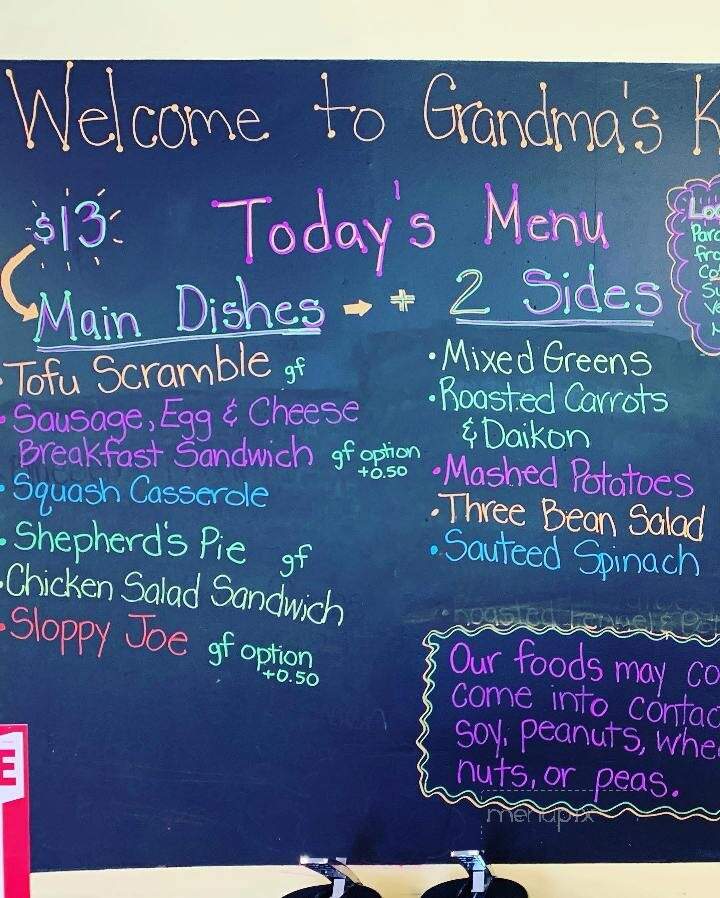 Welcome to Grandma's K
$13
Today's Menu
Main Dishes → + 2 Sides
• Tofu Scramble gf
• Sausage, Egg & Cheese
Breakfast Sandwich gf option
+0.50
• Squash Casserole
• Shepherd's Pie gf
• Chicken Salad Sandwich
• Sloppy Joe gf option
+0.50
• Mixed Greens
• Roasted Carrots
& Daikon
• Mashed Potatoes
• Three Bean Salad
• Sauteed Spinach
Our foods may co
come into contac
soy, peanuts, whe
nuts, or peas.
Loc
Par
fro
Co
Su
Ve
E
menupix